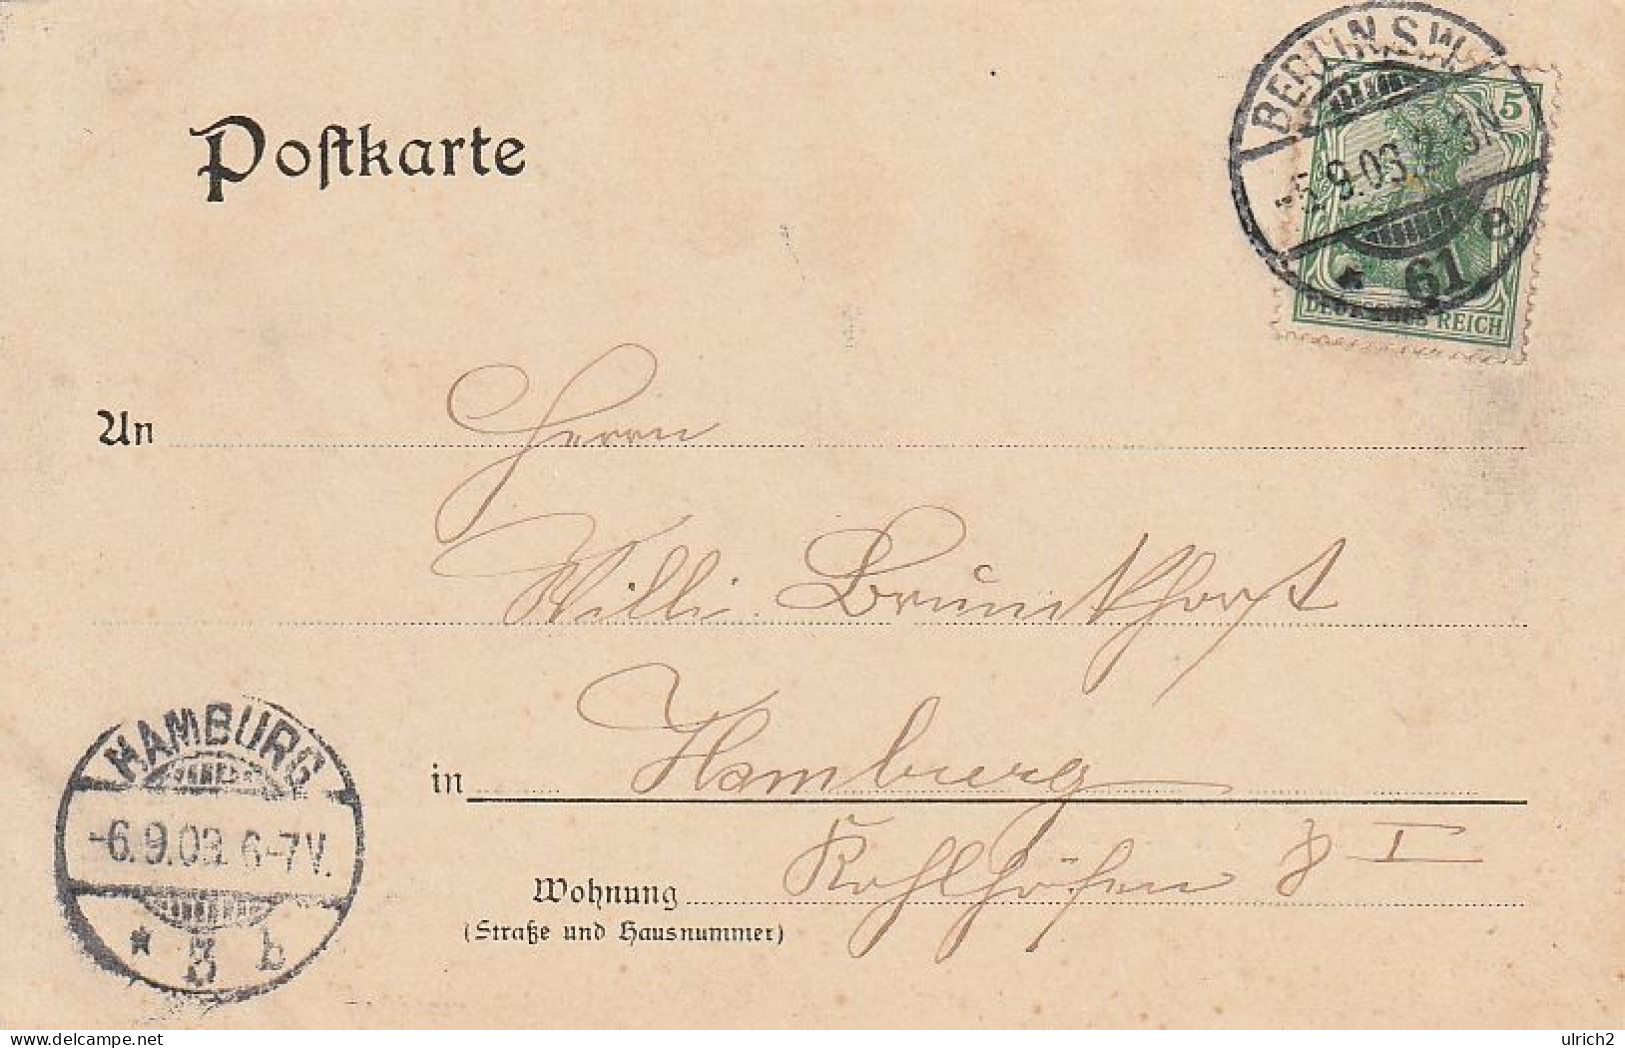 Postkarte
BERLIN S.W.
5
-5.9.03. 2-3N
* 61 e
DEUTSCHES REICH
An Herrn
Willi Brunckhorst
in Hamburg
Kohlhöfen 8 I
Wohnung
(Straße und Hausnummer)
HAMBURG
-6.9.03. 6-7V.
* 3 b
ulrich2